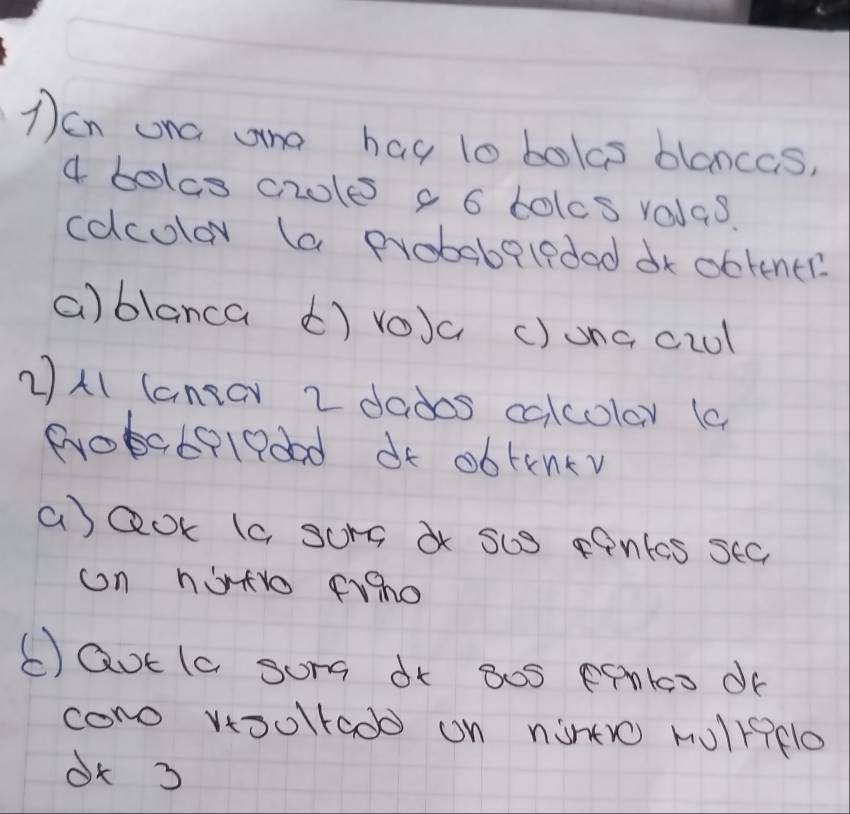 1) En una urna hay 10 bolas blancas,
4 bolas azules y 6 bolas rojas.
calcular la probabilidad de obtener:
a) blanca b) roja c) una azul
2) Al lanzar 2 dados calcular la
probabilidad de obtener
a) Que la suma de sus pintas sea
un número primo
b) Que la suma de sus pintas de
como resultado un número multiplo
de 3